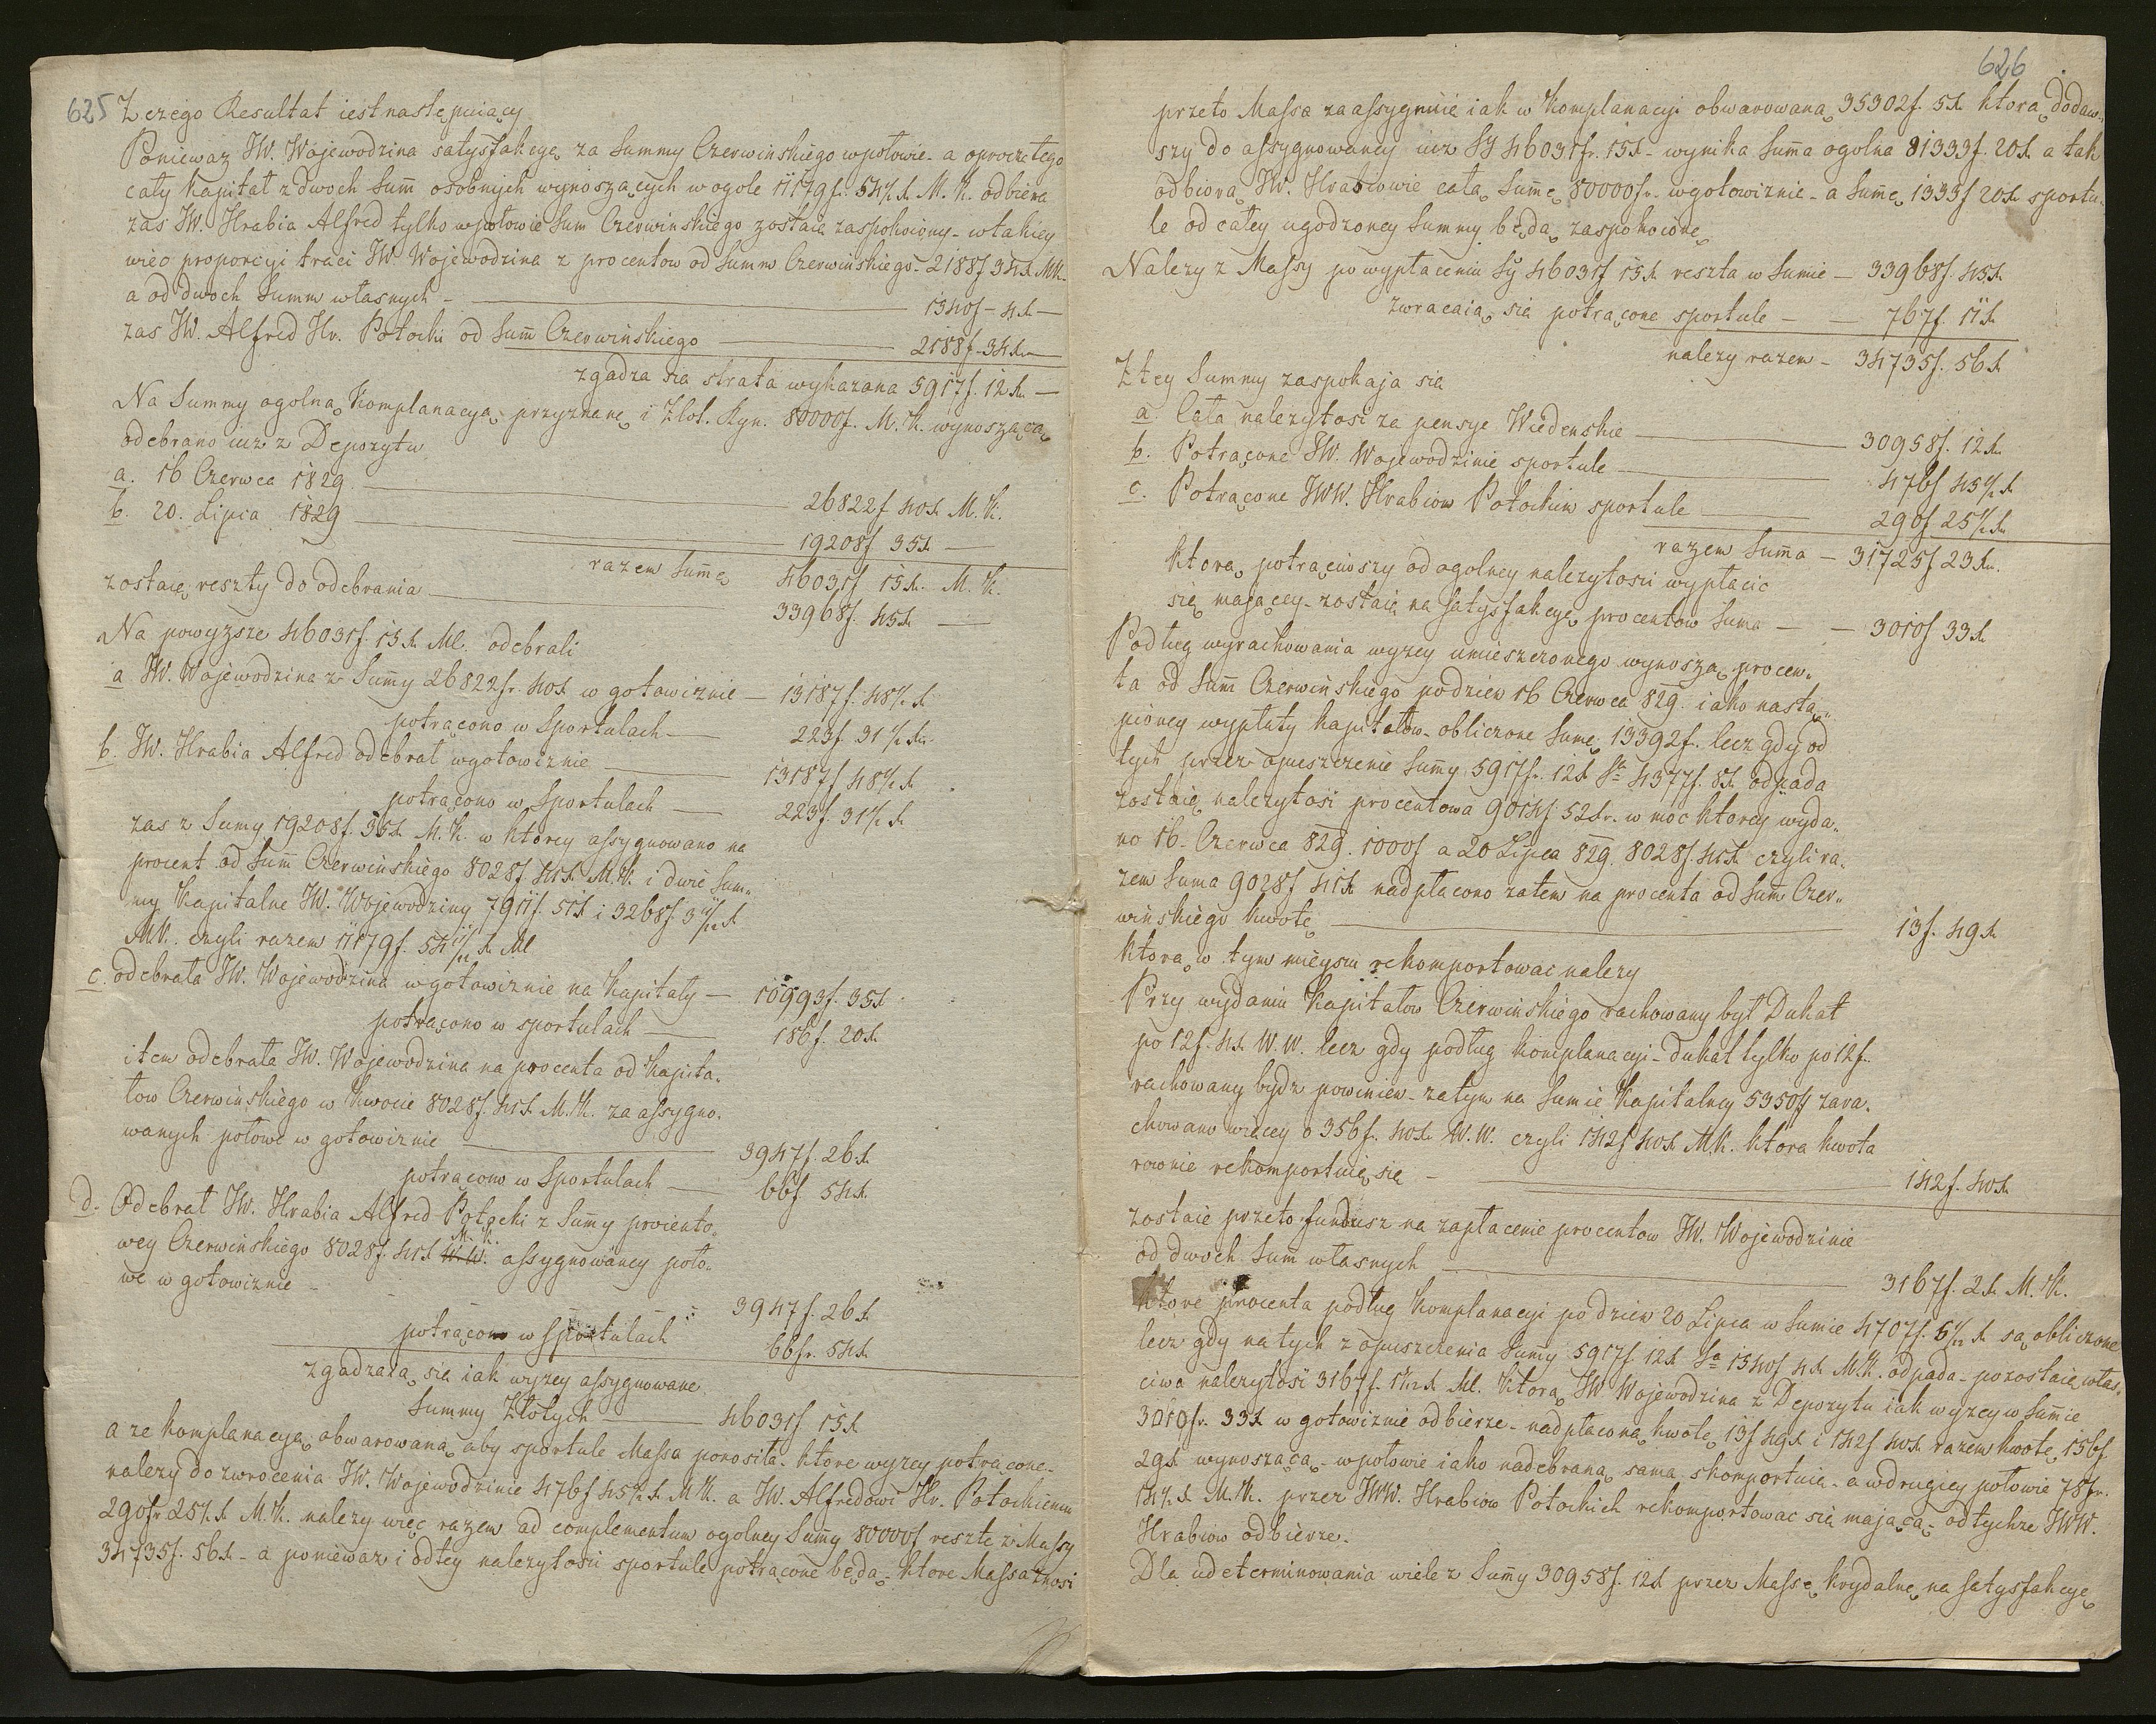 625
Z czego Resultat iest następuiący
Poniewaz JW. Wojewodzina satysfakcyę za Summy Czerwińskiego wpołowie - a oprocz tego
cały kapitał z dwoch Sum̄ osobnych wynoszących w ogole 11179f. 54½x. M. K. odbiera
zas JW. Hrabia Alfred tylko wpołowie Sum Czerwinskiego zostaie zaspokoiony - wtakiey
więc proporcyi traci JW Wojewodzina z procentow od Summ Czerwińskiego - 2188f 34x MK -
a od dwoch Summ własnych - 1540f - 4x -
zas JW. Alfred Hr. Potocki od Sum̄ Czerwińskiego 2188f 34x -
zgadza się strata wykazana 5917f. 12x -
Na Summy ogolną Komplanacyą przyznaną i Złot. Ryn. 80000f. M. K. wynoszącą
odebrano iuz z Depozytu
a. 16 Czerwca 1829 26822f 40x M. K.
b. 20. Lipca 1829 19208f 35x -
razem Sum̄ę 46031f 15x. M. K.
zostaie reszty do odebrania 33968f. 45x -
Na powyzsze 46031f. 15x Ml. odebrali
a JW. Wojewodzina z Sum̄y 26822fr. 40x w gotowiznie - 13187f. 48½x
potrącono w Sportulach - 223f. 31½x
b. JW. Hrabia Alfred odebrał wgotowiznie 13187f 48½x
potrącono w Sportulach - 223f. 31½x
zas z Sumy 19208f. 35x M. K. w ktorey assygnowano na
procent od Sum̄ Czerwińskiego 8028f 41x M. K. i dwie Sum„
my Kapitalne JW. Wojewodziny 7911f. 51x i 3268f. 3 11/12x
MK. czyli razem 11179f. 54 11/12x Ml
c. odebrała JW. Wojewodzina wgotowiznie na Kapitały - 10993f. 35x
potrącono w sportulach - 186f. 20x
item odebrała JW. Wojewodzina na procenta od Kapita„
low Czerwińskiego w Kwocie 8028f. 41x M. K. za assygno„
wanych połowę w gotowiznie 3947f. 26x
potrącono w Sportulach - 66f 54x
d. Odebrał JW. Hrabia Alfred Potocki z Sum̄y prciento„
M. K.
wey Czerwińskiego 8028f. 41x W. W. assygnowaney poło„
wę w gotowiznie - 3947f. 26x
potrącono w Sportulach 66fr. 54x
zgadzaią się iak wyzey assygnowane
Summy Złotych - 46031f 15x
a ze komplanacyą obwarowaną aby sportule Massa ponosiła - ktore wyzey potrącone -
nalezy do zwrocenia JW. Wojewodzinie 476f 45½x M. K. a JW. Alfredowi Hr. Potockiemu
290fr 25½x M. K. nalezy więc razem ad complementum ogolney Sum̄y 80000f resztę z Massy
34735f. 56x - a poniewaz i odtey nalezytosci sportule potrącone będą - ktore Massa znosi
626
przeto Massa zaassygnuie iak w Komplanacyi obwarowana 35302f. 5x ktorą dodaw„
szy do assygnowaney iuz Sy 46031fr. 15x - wynika Sum̄a ogolna 81333f. 20x a tak
odbiorą JW. Hrabiowie całą Sum̄ę 80000fr. wgotowiznie - a Sum̄ę 1333f 20x sportu„
le od całey ugodzoney Summy będą zaspokoione
Nalezy z Massy po wypłaceniu Sy 46031f 15x reszta w Sumie - 33968f. 45x
zwracaią się potrącone sportule - 767f. 11x
nalezy razem - 34735f. 56x
Z tey Summy zaspokaja się
a. Cała nalezytosc za pensye Wiedenskie 30958f. 12x
b. Potrącone JW. Wojewodzinie sportule 476f 45½x
c. Potrącone JWW. Hrabiow Potockim sportule 290f 25½x
razem Sum̄a - 31725f 23x.
ktorą potrąciwszy od ogolney nalezytosci wypłacic
się maiącey - zostaie na satysfakcyę procentow Suma - - 3010f 33x
Podług wyrachowania wyzey umieszczonego wynoszą procen„
ta od Sum̄ Czerwińskiego podzien 16 Czerwca 829. iako nastą„
pioney wypłaty kapitałow - obliczone Sumę 13392f. lecz gdy od
tych przez opuszczenie Sum̄y 5917fr. 12x Sa 4377f. 8x odpada
zostaie nalezytosci procentowa 9014f 52x. w moc ktorey wyda„
no 16. Czerwca 829. 1000f a 20 Lipca 829. 8028f. 41x czyli ra„
zem Suma 9028f 41x nadpłacono zatem na procenta od Sum̄ Czer„
winskiego kwotę 13f. 49x
ktorą w tym mieyscu rekomportowac nalezy
Przy wydaniu Kapitałow Czerwińskiego rachowany był Dukat
po 12f. 4x W. W. lecz gdy podług komplanacyi - dukat tylko po 12f.
rachowany bydz powinien - zatym na Sumie Kapitalney 5350# zara„
chowano więcey o 356f. 40x W. W. czyli 142f 40x M.K. ktora kwota
rownie rekomportuie się - 142f. 40x
zostaie przeto fundusz na zapłacenie procentow JW. Wojewodzinie
od dwoch Sum̄ własnych 3167f. 2x M. K.
ktore procenta podług Komplanacyi po dzien 20 Lipca w Sumie 4707f. 5½x są obliczone
lecz gdy na tych z opuszczenia Sumy 5917f. 12x Sa 1540f 4x M.K. odpada - pozostaie włas„
ciwa nalezytosc 3167f. 1½x Ml. ktorą JW Wojewodzina z Depozytu iak wyzey w Sum̄ie
3010fr. 33x w gotowiznie odbierze - nadpłaconą kwotę 13f 49x i 142f 40x razem kwotę 156f
29x wynoszącą - wpołowie iako nadebraną sama skomportuie - a wdrugiey połowie 78fr.
14½x M.K. przez JWW. Hrabiow Potockich rekomportowac się maiącą - od tychze JWW.
Hrabiow odbierze.
Dla udeterminowania wiele z Sum̄y 30958f. 12x przez Massę krydalną na satysfakcyę